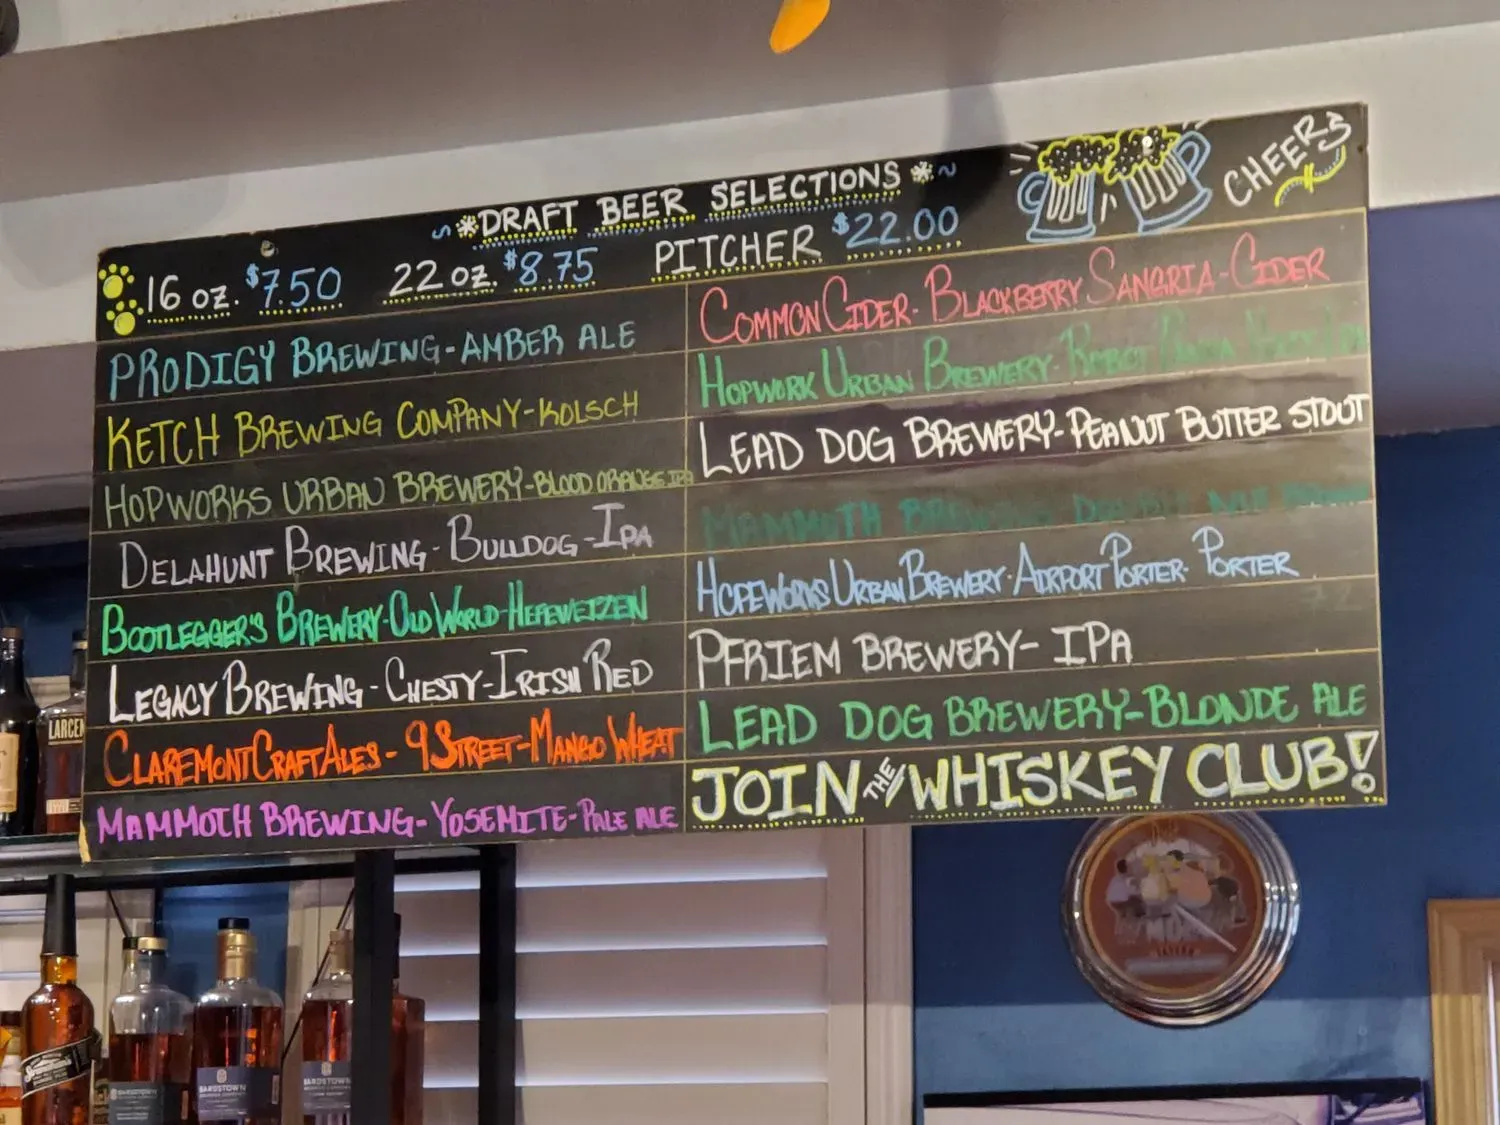 *DRAFT BEER SELECTIONS*~
CHEERS
16 oz. $7.50 22 oz. $8.75 PITCHER $22.00
PRODIGY BREWING-AMBER ALE
KETCH BREWING COMPANY-KOLSCH
HOPWORKS URBAN BREWERY-BLOOD ORANGE IPA
DELAHUNT BREWING-BULLDOG-IPA
BOOTLEGGER'S BREWERY-OLD WORLD-HEFEWEIZEN
LEGACY BREWING-CHESTY-IRISH RED
CLAREMONT CRAFT ALES-9 STREET-MANGO WHEAT
MAMMOTH BREWING-YOSEMITE-PALE ALE
COMMON CIDER-BLACKBERRY SANGRIA-CIDER
HOPWORK URBAN BREWERY-ROBOT
LEAD DOG BREWERY-PEANUT BUTTER STOUT
MAMMOTH BREWING DOUBLE NUT BROWN
HOPEWORKS URBAN BREWERY-AIRPORT PORTER-PORTER
PFRIEM BREWERY-IPA
LEAD DOG BREWERY-BLONDE ALE
JOIN THE WHISKEY CLUB!
LARCEN
BARDSTOWN
BARDSTOWN
BARDSTOWN
TAVERN